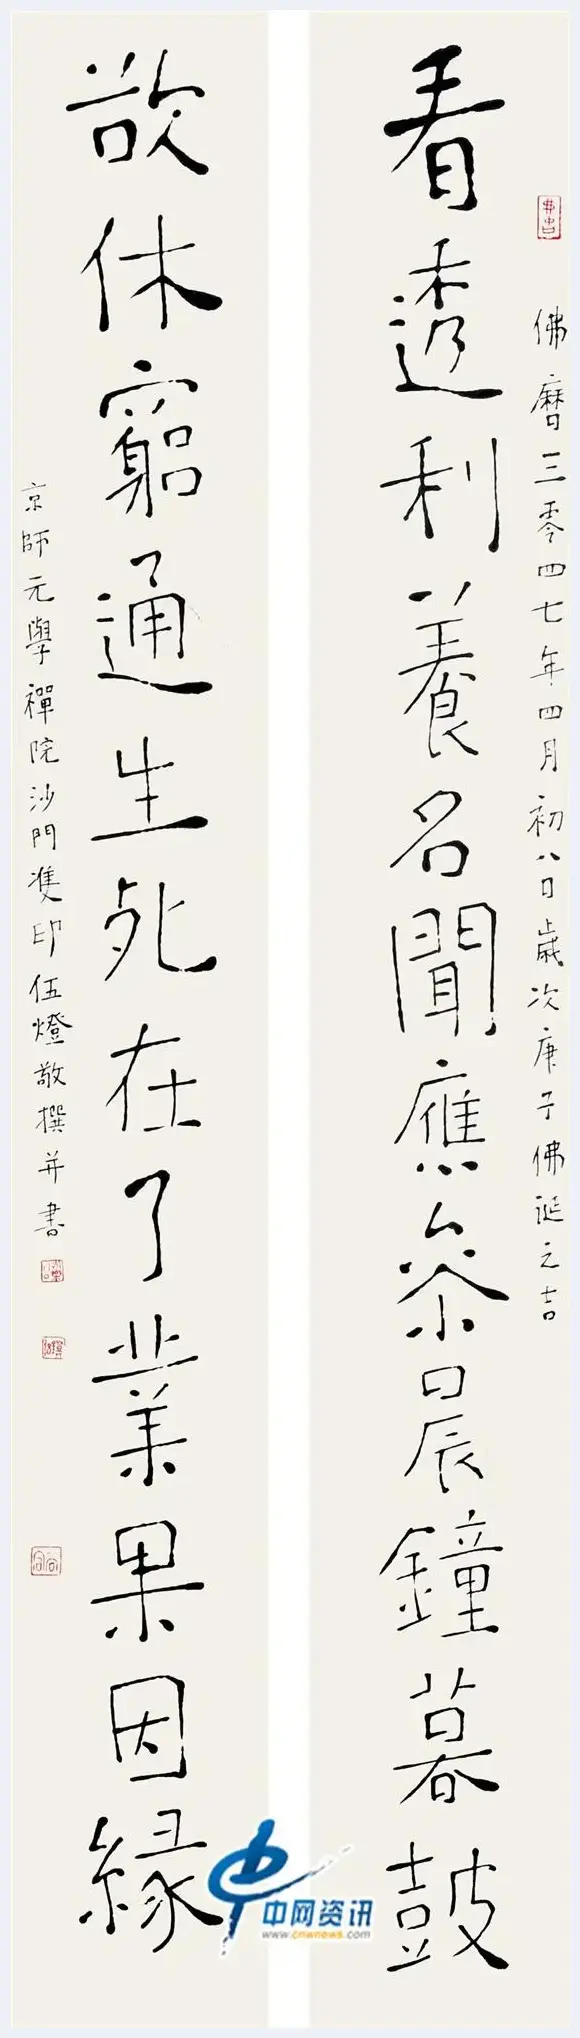 佛曆三零四七年四月初八日歲次庚子佛誕之吉
看透利養名聞應參晨鐘暮鼓
欲休竆通生死在了業果因緣
京師元學禪院沙門雙印伍燈敬撰并書
中网资讯
www.cnwnews.com